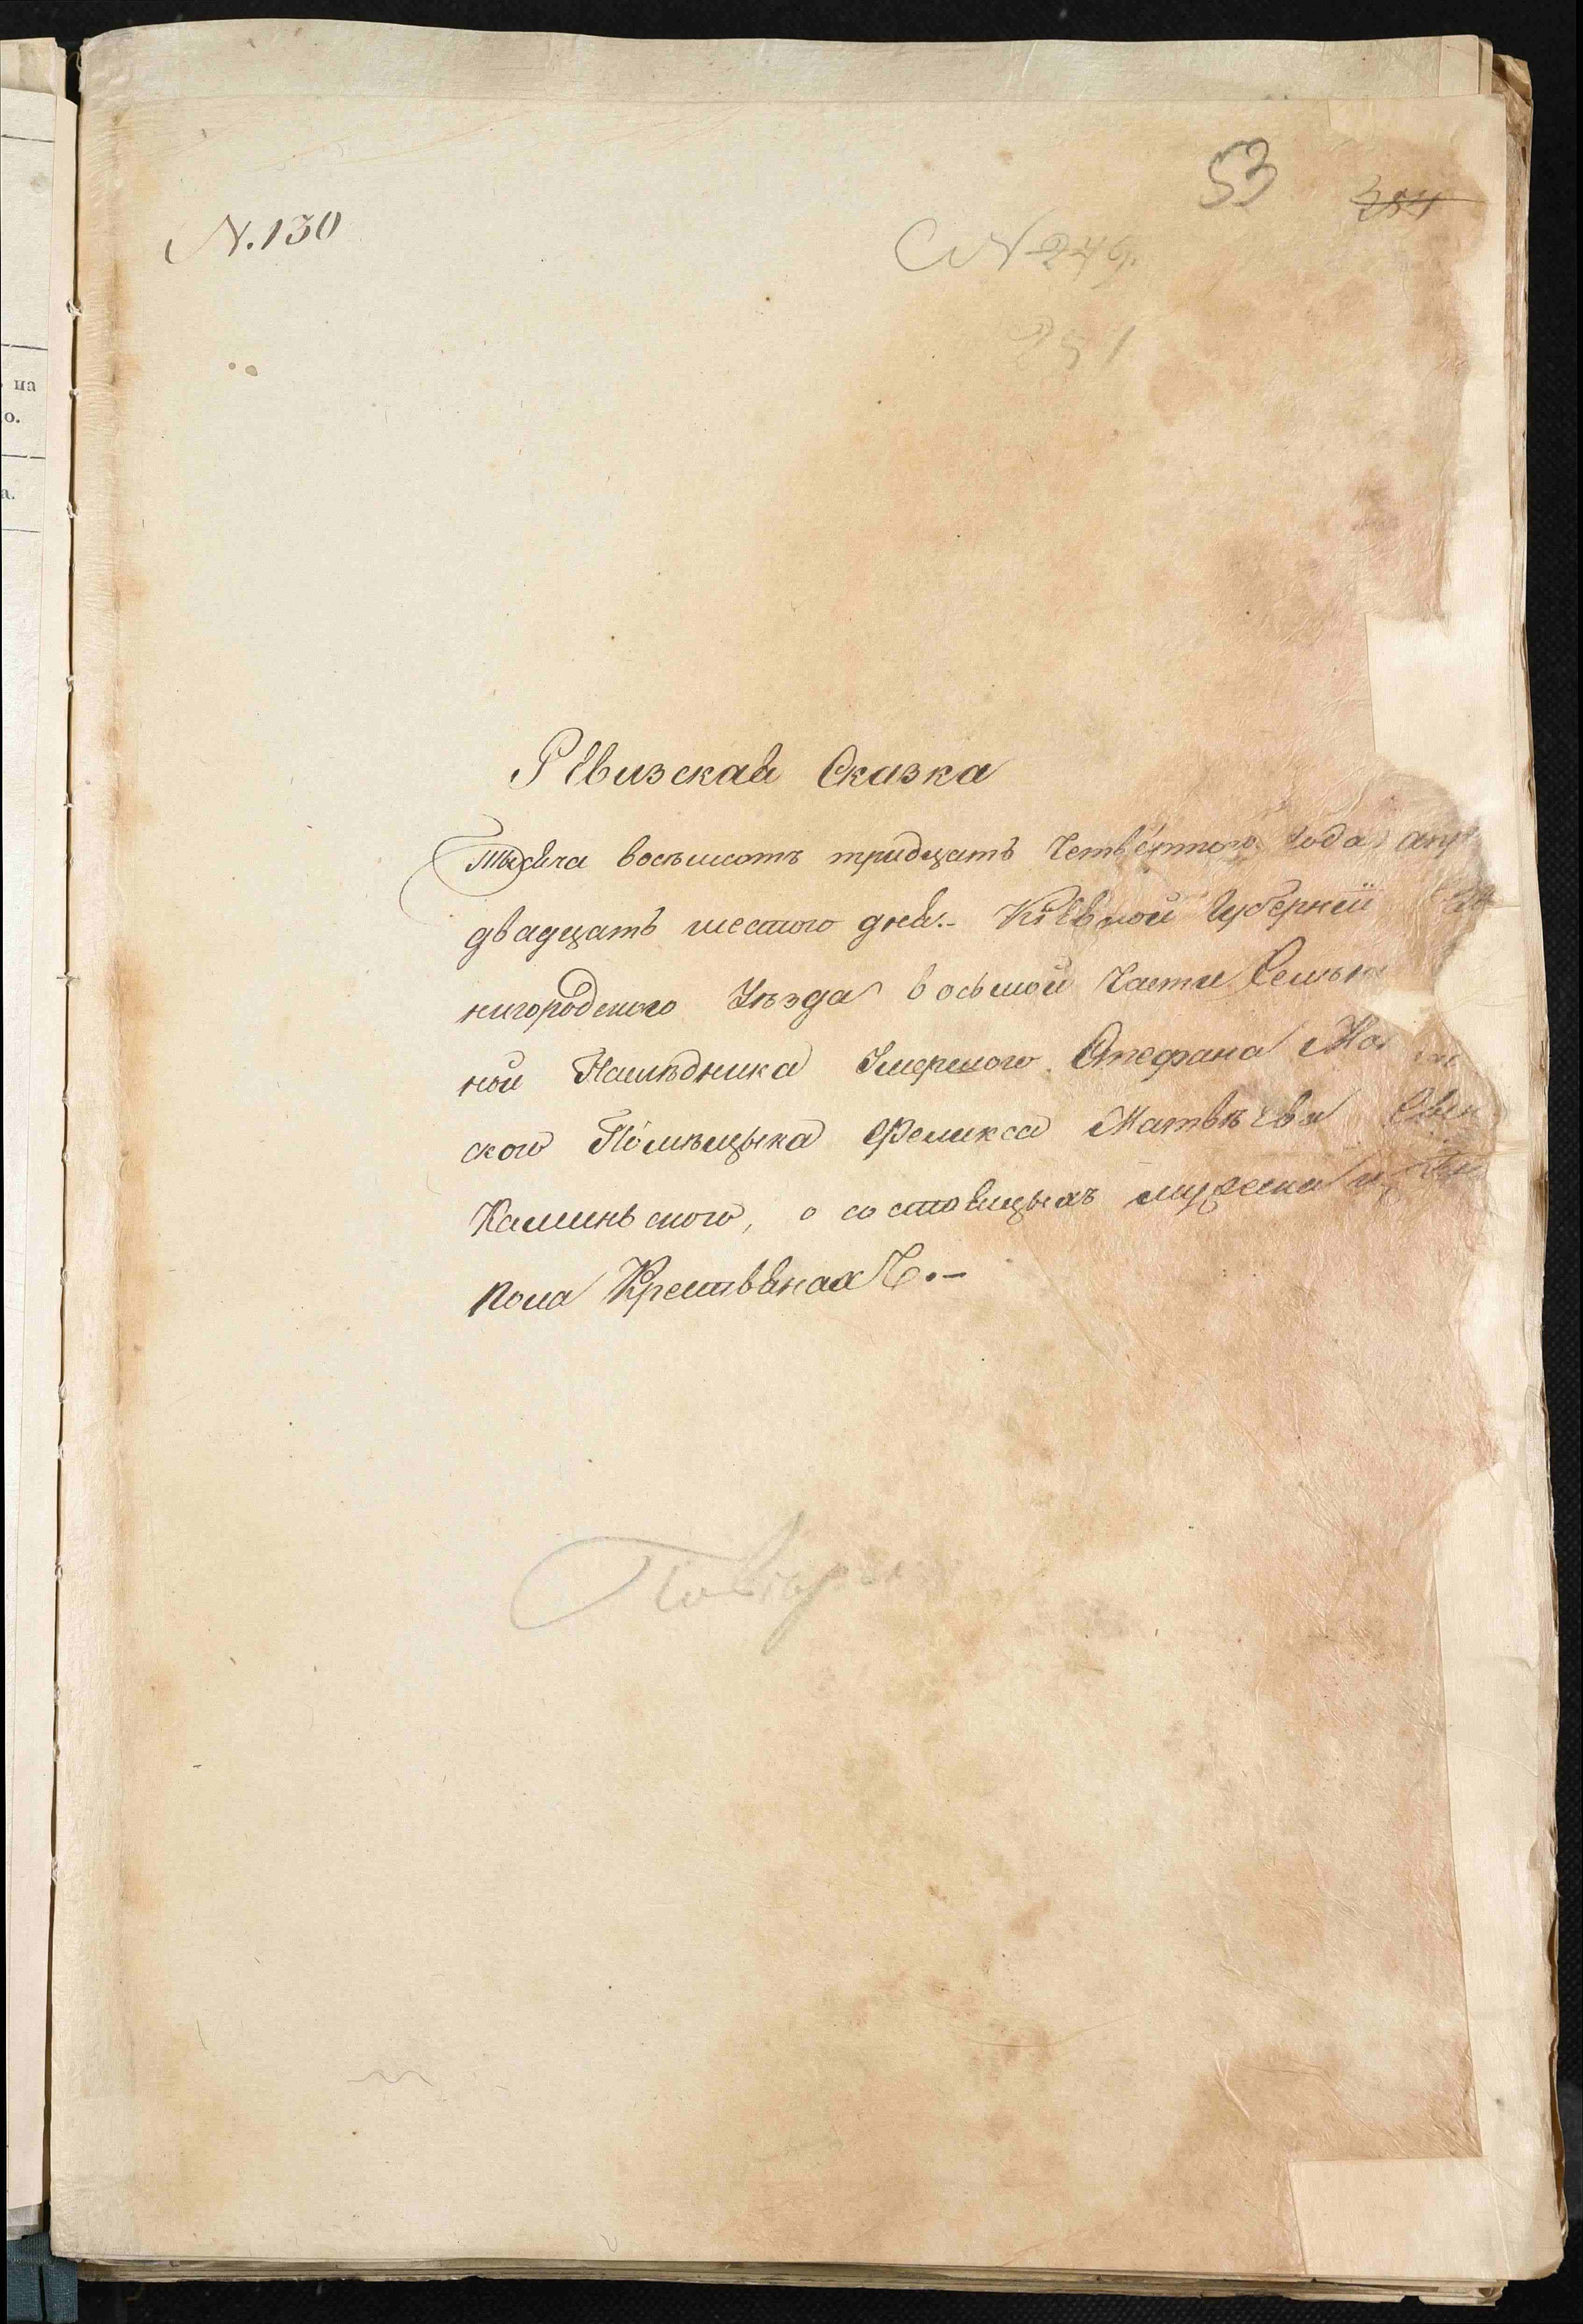 на
о.
а.
53
384
N. 130
N 249.
251
Ревизская Сказка
Тысяча восемьсотъ тридцать Четвертого Года апр
двадцать шестого дня.- Кіевской Губерніи
нигородского Уѣзда восьмой Части Сельца
ной Наслѣдника Умершого Стефана
ского Помѣщыка Феликса Матвѣева
Каминьского, о состоящыхъ мужеска и
пола Крестьянахъ.-